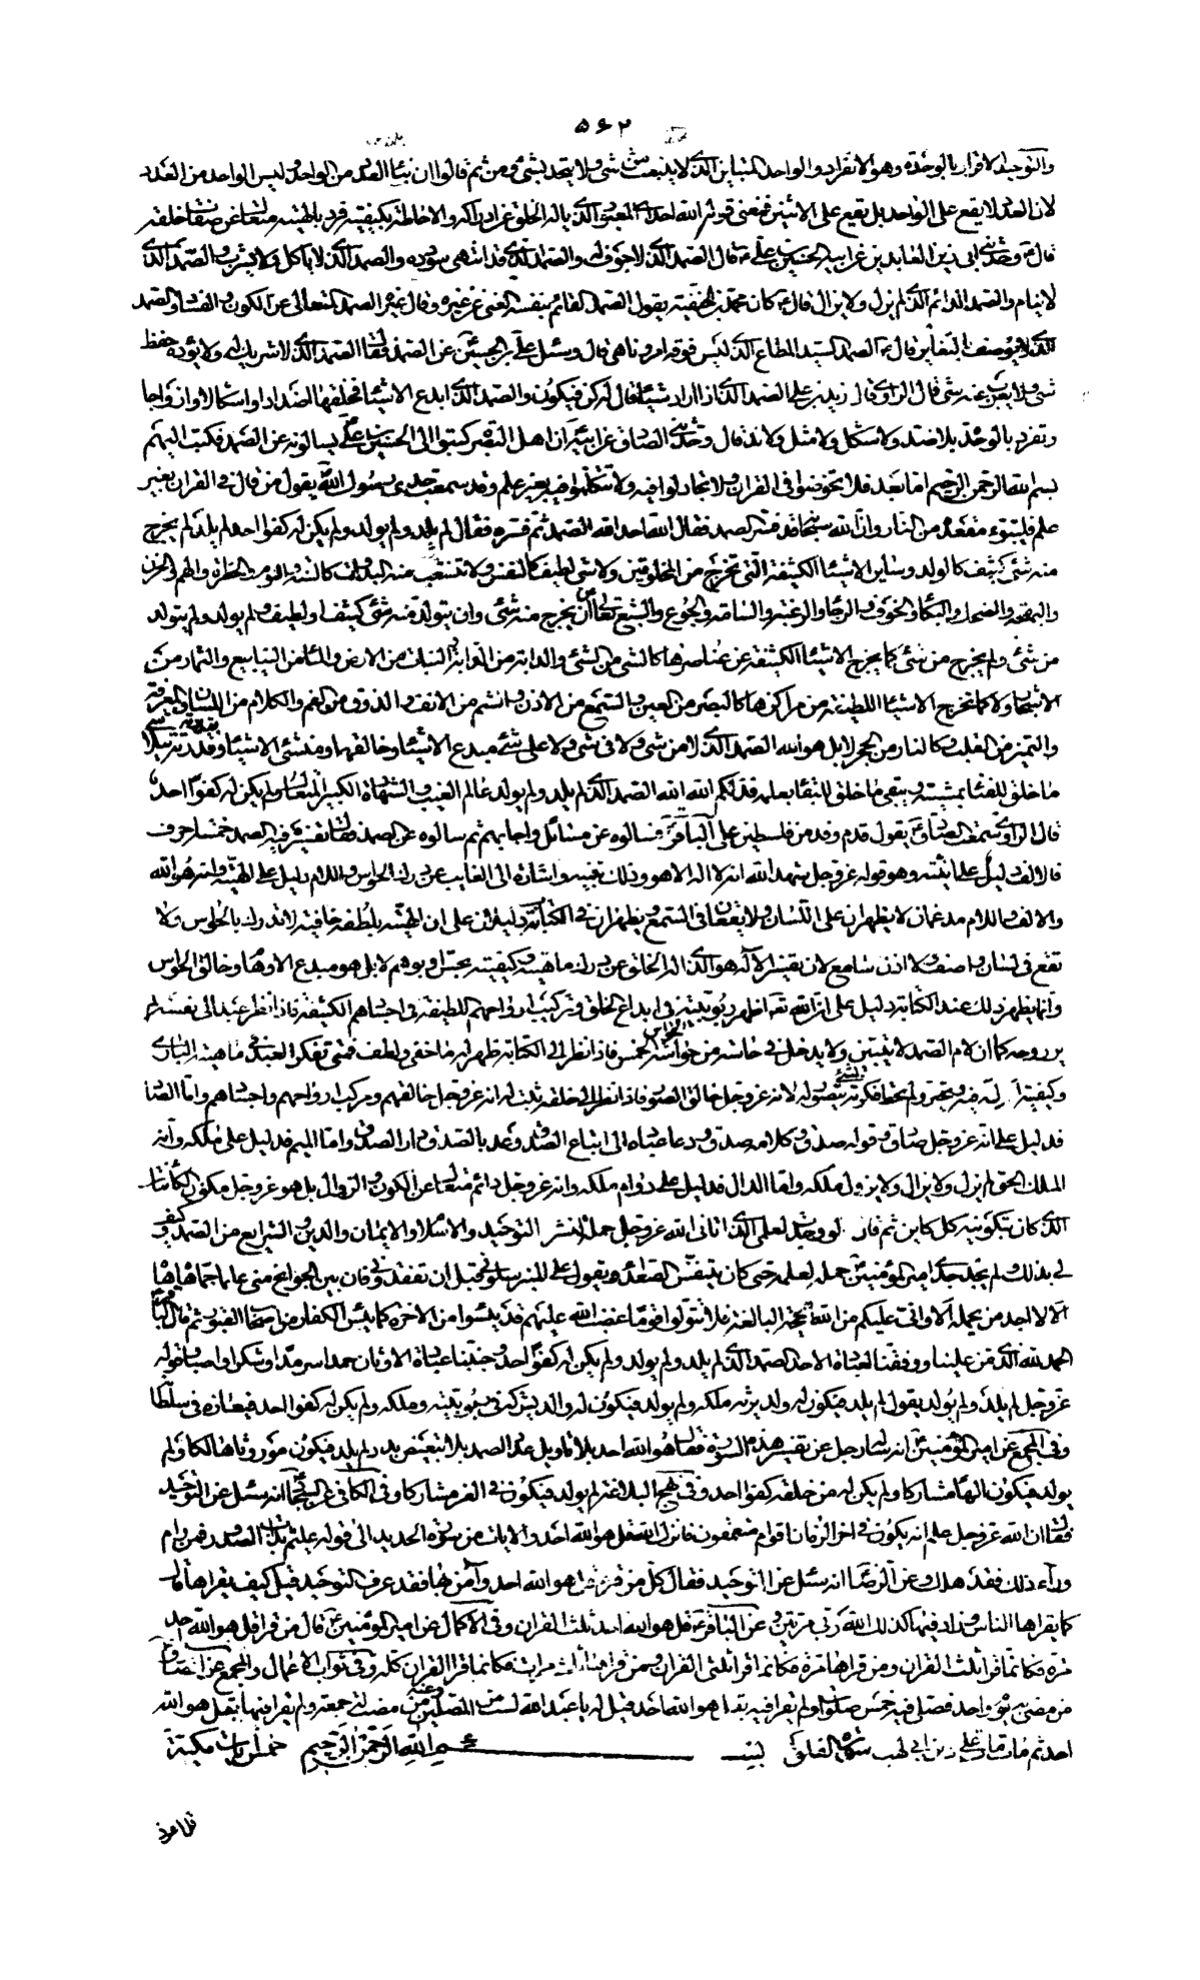 ۵۶۲
والتوحيد الاقرار بالوحدة وهو الانفراد والواحد المتباين الذي لا ينبعث من شيء ولا يتحد بشيء ومن ثم قالوا ان بناء العدد من الواحد وليس الواحد من العدد
لان العدد لا يقع على الواحد بل يقع على الاثنين فمعنى قوله الله احد اي المعبود الذي يأله الخلق عن ادراكه والاحاطة بكيفيته فرد بالهيته متعال عن صفات خلقه
قال وحدثني ابي زين العابدين عن ابيه الحسين بن علي ع قال الصمد الذي لا جوف له والصمد الذي قد انتهى سودده والصمد الذي لا يأكل ولا يشرب والصمد الذي
لا ينام والصمد الدائم الذي لم يزل ولا يزال قال ع كان محمد بن الحنفية يقول الصمد القائم بنفسه الغني عن غيره وقال غيره الصمد المتعالى عن الكون والفساد والصمد
الذي لا يوصف بالتغاير قال ع الصمد السيد المطاع الذي ليس فوقه امر وناهي قال وسئل علي بن الحسين عن الصمد فقال الصمد الذي لا شريك له ولا يؤده حفظ
شيء ولا يعزب عنه شيء قال الراوي قال زيد بن علي الصمد الذي اذا اراد شيئا قال له كن فيكون والصمد الذي ابدع الاشياء فخلقها اضدادا واشكالا وازواجا
وتفرد بالوحدة بلا ضد ولا شكل ولا مثل ولا ند قال وحدثني الصادق عن ابيه ان اهل البصرة كتبوا الى الحسين بن علي يسالونه عن الصمد فكتب اليهم
بسم الله الرحمن الرحيم اما بعد فلا تخوضوا في القران ولا تجادلوا فيه ولا تتكلموا فيه بغير علم وقد سمعت جدي رسول الله يقول من قال في القران بغير
علم فليتبوء مقعده من النار وان الله سبحانه قد فسر الصمد فقال الله احد الله الصمد ثم فسره فقال لم يلد ولم يولد ولم يكن له كفوا احد لم يلد لم يخرج
منه شيء كثيف كالولد وسائر الاشياء الكثيفة التي تخرج من المخلوقين ولا شيء لطيف كالنفس ولا تتشعب منه البدوات كالسنة والنوم والخطرة والهم والحزن
والبهجة والضحك والبكاء والخوف والرجاء والرغبة والسامة والجوع والشبع تعالى ان يخرج منه شيء وان يتولد منه شيء كثيف او لطيف ولم يولد ولم يتولد
من شيء ولم يخرج من شيء كما يخرج الاشياء الكثيفة عن عناصرها كالشيء من الشيء والدابة من الدابة والنبات من الارض والماء من الينابيع والثمار من
الاشجار ولا كما تخرج الاشياء اللطيفة من مراكزها كالبصر من العين والسمع من الاذن والشم من الانف والذوق من الفم والكلام من اللسان والمعرفة
والتميز من القلب وكالنار من الحجر لا بل هو الله الصمد الذي لا من شيء ولا في شيء ولا على شيء مبدع الاشياء وخالقها ومنشئ الاشياء بقدرته يتلاشى
ما خلق للفناء بمشيته ويبقى ما خلق للبقاء بعلمه فذلكم الله الله الصمد الذي لم يلد ولم يولد عالم الغيب والشهادة الكبير المتعال ولم يكن له كفوا احد
قال الراوي سمعت الصادق ع يقول قدم وفد من فلسطين على الباقر ع فسالوه عن مسائل واجابهم ثم سالوه عن الصمد فقال تفسيره فيه الصمد خمسة احرف
فالالف دليل على انيته وهو قوله عز وجل شهد الله انه لا اله الا هو وذلك تنبيه واشارة الى الغايب عن درك الحواس واللام دليل على الهيته وانه هو الله
والالف واللام مدغمان لا يظهران على اللسان ولا يقعان في السمع ويظهران في الكتابة دليلان على ان الهيته بلطفه خافية لا تدرك بالحواس ولا
تقع في لسان واصف ولا اذن سامع لان تفسير الاله هو الذي اله الخلق عن درك ماهيته وكيفيته بحس او بوهم لا بل هو مبدع الاوهام وخالق الحواس
وانما يظهر ذلك عند الكتابة دليل على ان الله تعه اظهر ربوبيته في ابداع الخلق وتركيب ارواحهم اللطيفة في اجسادهم الكثيفة فاذا نظر عبد الى نفسه لم
ير روحه كما ان لام الصمد لا يتبين ولا يدخل في حاسة من حواسه الخمس فاذا نظر الى الكتابة ظهر له ما خفي ولطف فمتى تفكر العبد في ماهية الباري
وكيفيته اله فيه وتحير ولم يحط فكرته بشيء يتصور له لانه عز وجل خالق الصور فاذا نظر الى خلقه ثبت له انه عز وجل خالقهم ومركب ارواحهم واجسادهم واما الصاد
فدليل على انه عز وجل صادق وقوله صدق وكلامه صدق ودعا عباده الى اتباع الصدق ووعد بالصدق دار الصدق واما الميم فدليل على ملكه وانه
الملك الحق لم يزل ولا يزال ولا يزول ملكه واما الدال فدليل على دوام ملكه وانه عز وجل دائم متعال عن الكون والزوال بل هو عز وجل مكون الكائنات
الذي كان بتكوينه كل كاين ثم قال لو وجدت لعلمي الذي اتاني الله عز وجل حملة لنشر التوحيد والاسلام والايمان والدين والشرايع من الصمد وكيف
لي بذلك ولم يجد جدي امير المؤمنين حملة لعلمه حتى كان يتنفس الصعداء ويقول على المنبر سلوني قبل ان تفقدوني فان بين الجوانح مني علما جما هاه هاه
الا لا اجد من يحمله الا واني عليكم من الله الحجة البالغة فلا تتولوا قوما غضب الله عليهم قد يئسوا من الاخرة كما يئس الكفار من اصحاب القبور ثم قال الباقر
الحمد لله الذي من علينا ووفقنا لعبادة الاحد الصمد الذي لم يلد ولم يولد ولم يكن له كفوا احد وجنبنا عبادة الاوثان حمدا سرمدا وشكرا واصبا وقوله
عز وجل لم يلد ولم يولد يقول لم يلد فيكون له ولد يرثه ملكه ولم يولد فيكون له والد يشركه في ربوبيته وملكه ولم يكن له كفوا احد فيعازه في سلطانه
وفي المجمع عن امير المؤمنين انه سأله رجل عن تفسير هذه السورة فقال هو الله احد بلا تأويل عدد الصمد بلا تبعيض بدد لم يلد فيكون موروثا هالكا ولم
يولد فيكون الها مشاركا ولم يكن له من خلقه كفوا احد وفي نهج البلاغة لم يولد فيكون في العز مشاركا وفي الكافي عن السجاد انه سئل عن التوحيد
فقال ان الله عز وجل علم انه يكون في اخر الزمان اقوام متعمقون فانزل الله قل هو الله احد والايات من سورة الحديد الى قوله عليم بذات الصدور فمن رام
وراء ذلك فقد هلك وعن الرضا انه سئل عن التوحيد فقال كل من قرء قل هو الله احد وآمن بها فقد عرف التوحيد قيل كيف يقراها قال
كما يقراها الناس وزاد فيها كذلك الله ربي مرتين وعن الباقر ع قل هو الله احد ثلث القران وفي الاكمال عن امير المؤمنين ع قال من قرا قل هو الله احد
مرة فكانما قرا ثلث القران ومن قراها مرتين فكانما قرا ثلثي القران ومن قراها ثلث مرات فكانما قرا القران كله وفي ثواب الاعمال والمجمع عن الصادق
من مضى به يوم واحد فصلى فيه خمس صلوات ولم يقرا فيه بقل هو الله احد قيل له يا عبد الله لست من المصلين وعنه من مضت له جمعة ولم يقرا فيها بقل هو الله
احد ثم مات مات على دين ابي لهب سورة الفلق بسم الله الرحمن الرحيم خمس ايات مكية
قل اعوذ